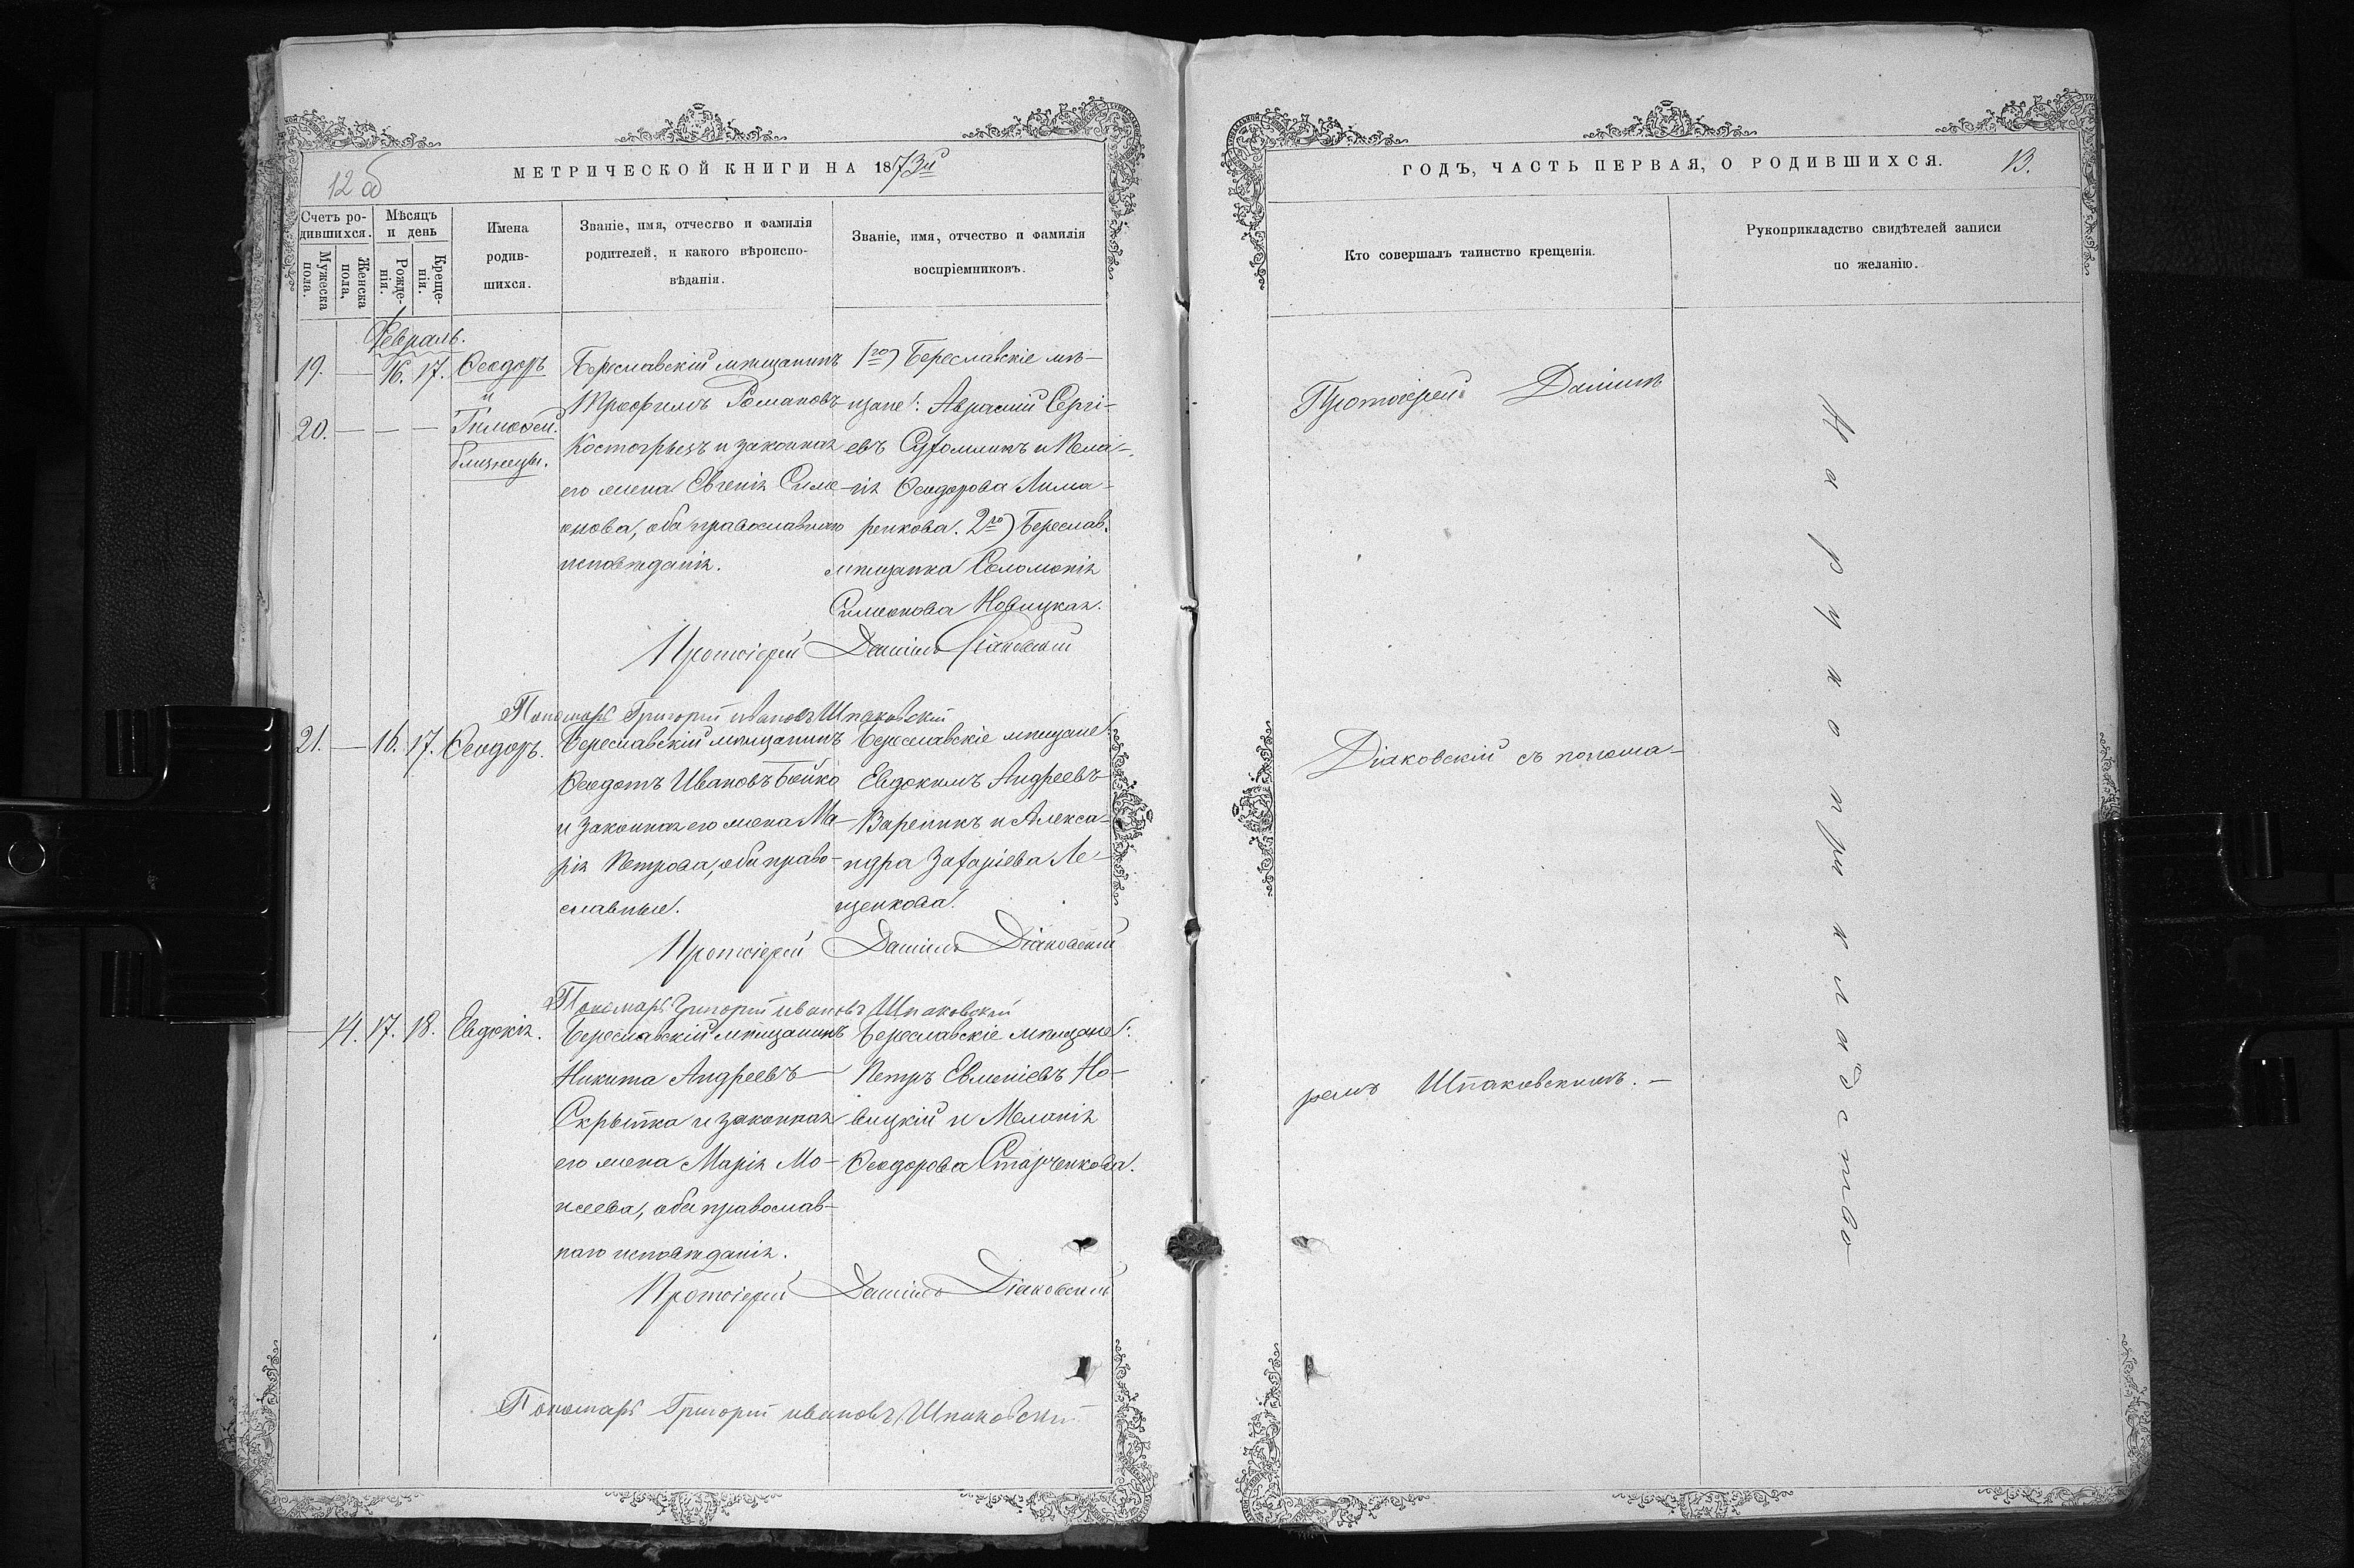 12 об
МЕТРИЧЕСКОЙ КНИГИ НА 1873й
Счетъ ро-
дившихся.
Мужеска
пола.
Женска
пола.
Мѣсяцъ
и день
Рожде-
нія.
Креще-
нія.
Имена
родив-
шихся.
Званіе, имя, отчество и фамилія
родителей, и какого вѣроиспо-
вѣданія.
Званіе, имя, отчество и фамилія
воспріемниковъ.
Февраль.
19. — 16. 17. Ѳеодоръ
и
20. — — — Тимоѳей.
близнецы.
Береславскій мѣщанинъ
Трофимъ Романовъ
Костогрызъ и законная
его жена Евгенія Симе-
онова, оба православнаго
исповѣданія.
1го) Береславскіе мѣ-
щане: Авраамій Сергі-
евъ Сухомлинъ и Пела-
гія Ѳеодорова Лима-
ренкова. 2го) Береслав.
мѣщанка Соломонія
Симеонова Новицкая.
Протоіерей Даніилъ Діаковскій
Пономарь Григорій ивановъ Шпаковскій
21. — 16. 17. Ѳеодоръ.
Береславскій мѣщанинъ
Ѳеодотъ Ивановъ Бойко
и законная его жена Ма-
рія Петрова, оба право-
славные.
Береславскіе мѣщане:
Евдокимъ Андреевъ
Вареникъ и Алекса-
ндра Захаріева Ле-
щенкова.
Протоіерей Даніилъ Діаковскій
Пономарь Григорій ивановъ Шпаковскій
— 14. 17. 18. Евдокія.
Береславскій мѣщанинъ
Никита Андреевъ
Скрыпка и законная
его жена Марія Мо-
исеева, оба православ-
наго исповѣданія.
Береславскіе мѣщане:
Петръ Евменіевъ Но-
вицкій и Меланія
Ѳеодорова Старченкова.
Протоіерей Даніилъ Діаковскій
Пономарь Григорій ивановъ Шпаковскій
ГОДЪ, ЧАСТЬ ПЕРВАЯ, О РОДИВШИХСЯ.
13.
Кто совершалъ таинство крещенія.
Рукоприкладство свидѣтелей записи
по желанію.
Протоіерей Даніилъ
Діаковскій съ понома-
ремъ Шпаковскимъ. —